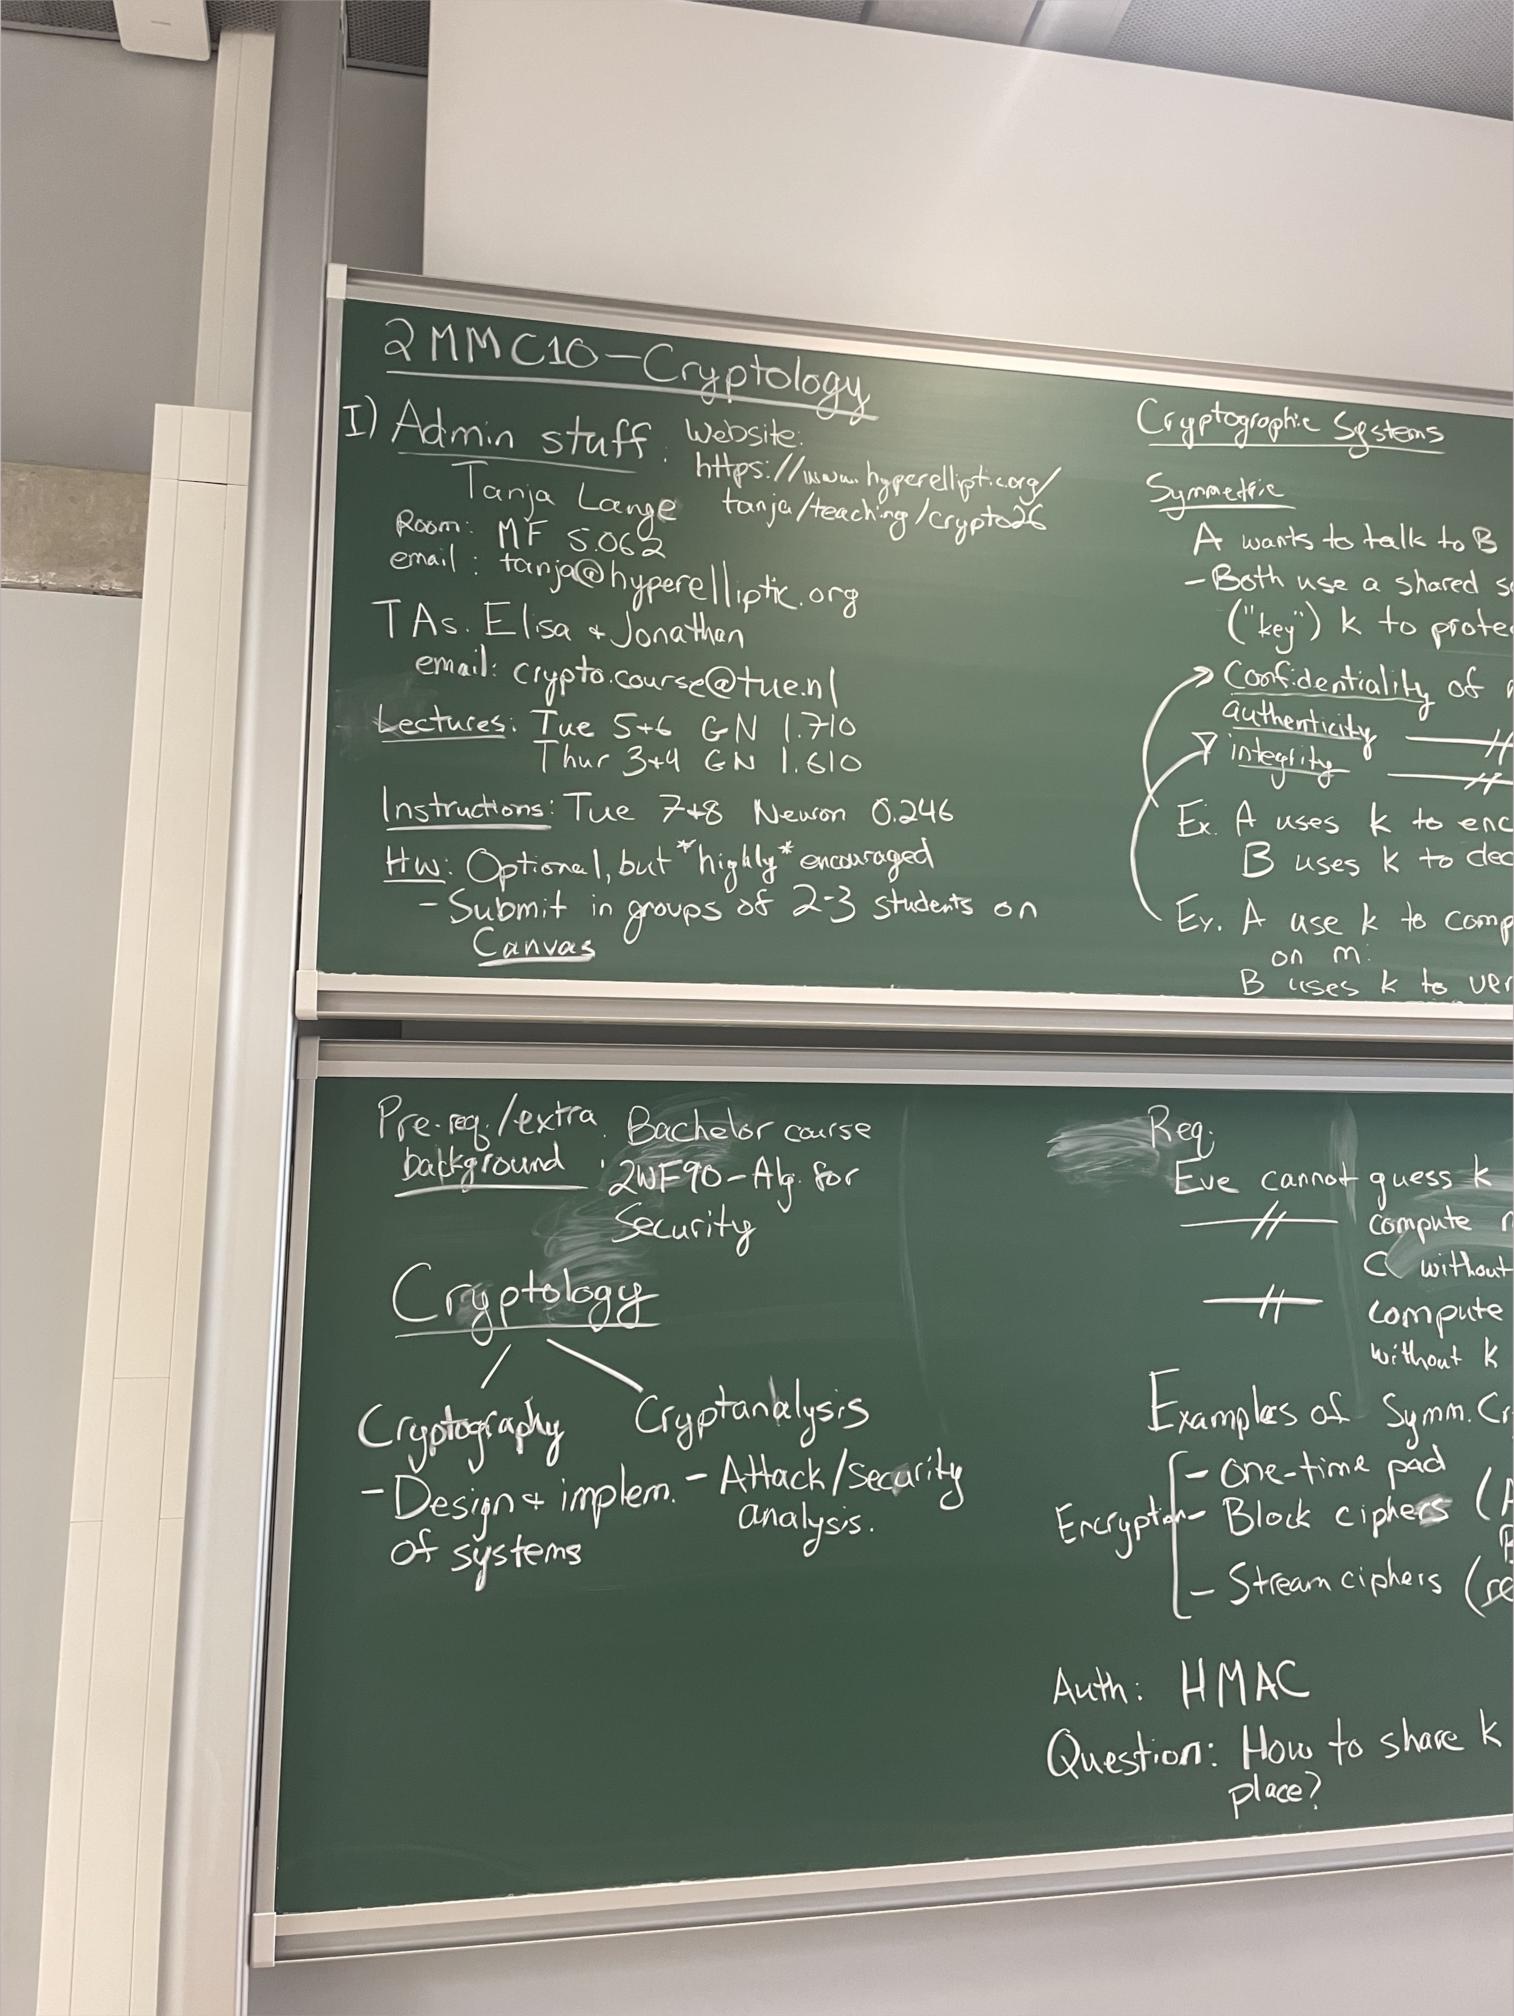 2MMC10 – Cryptology
I) Admin stuff:
Website:
https://www.hyperelliptic.org/
tanja/teaching/crypto26
Tanja Lange
Room: MF 5.062
email: tanja@hyperelliptic.org
TAs. Elisa + Jonathan
email: crypto.course@tue.nl
Lectures: Tue 5+6 GN 1.710
Thur 3+4 GN 1.610
Instructions: Tue 7+8 Newron 0.246
HW: Optional, but *highly* encouraged
- Submit in groups of 2-3 students on
Canvas
Cryptographic Systems
Symmetric
A wants to talk to B
- Both use a shared
("key") k to
Confidentiality of
authenticity
integrity
Ex. A uses k to
B uses k to
Ex. A use k to
on m:
B uses k to
Pre-req./extra
background :
Bachelor course
2WF90 – Alg. for
Security
Cryptology
Cryptography
- Design + implem.
of systems
Cryptanalysis
- Attack/security
analysis.
Req:
Eve cannot guess k
compute
C without
compute
without k
Examples of Symm.
Encryption
- One-time pad
- Block ciphers
- Stream ciphers
Auth: HMAC
Question: How to share k
place?